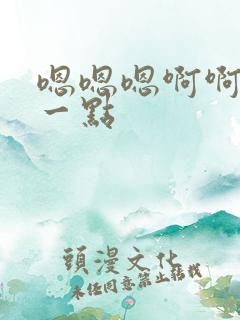 嗯嗯嗯啊啊
一點
頭漫文化
未經同意禁止轉載